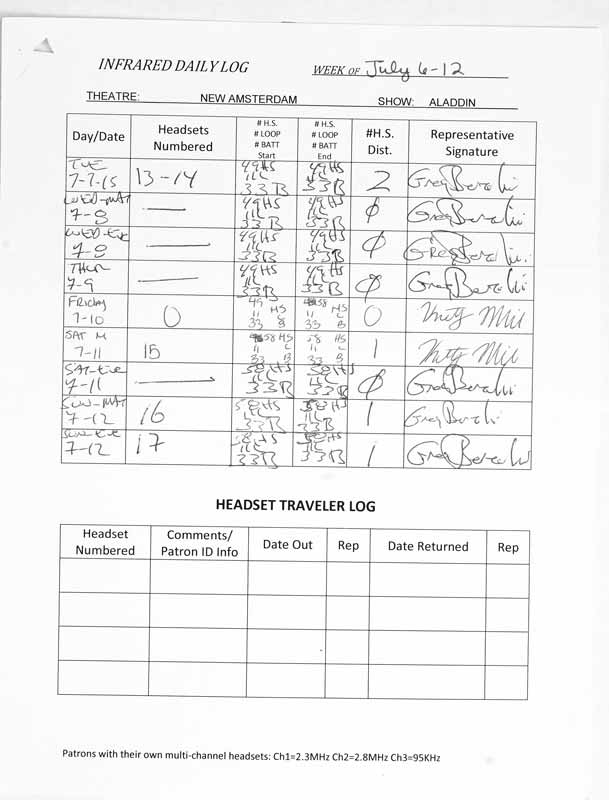 INFRARED DAILY LOG WEEK OF July 6-12
THEATRE: NEW AMSTERDAM SHOW: ALADDIN
Day/Date Headsets Numbered # H.S. # LOOP # BATT Start # H.S. # LOOP # BATT End #H.S. Dist. Representative Signature
TUE 7-7-15 13-14 49HS 11L 33B 49HS 11L 33B 2
WED-MAT 7-8 — 49HS 11L 33B 49HS 11L 33B 0
WED-EVE 7-8 — 49HS 11L 33B 49HS 11L 33B 0
THUR 7-9 — 49HS 11L 33B 49HS 11L 33B 0
FRIDAY 7-10 0 49 HS 11 L 33 B 58 HS 11 L 33 B 0
SAT M 7-11 15 58 HS 11 L 33 B 58 HS 11 L 33 B 1
SAT-EVE 7-11 — 58HS 11L 33B 58HS 11L 33B 0
SUN-MAT 7-12 16 58HS 11L 33B 58HS 11L 33B 1
SUN-EVE 7-12 17 58HS 11L 33B 58HS 11L 33B 1
HEADSET TRAVELER LOG
Headset Numbered Comments/ Patron ID Info Date Out Rep Date Returned Rep
Patrons with their own multi-channel headsets: Ch1=2.3MHz Ch2=2.8MHz Ch3=95KHz